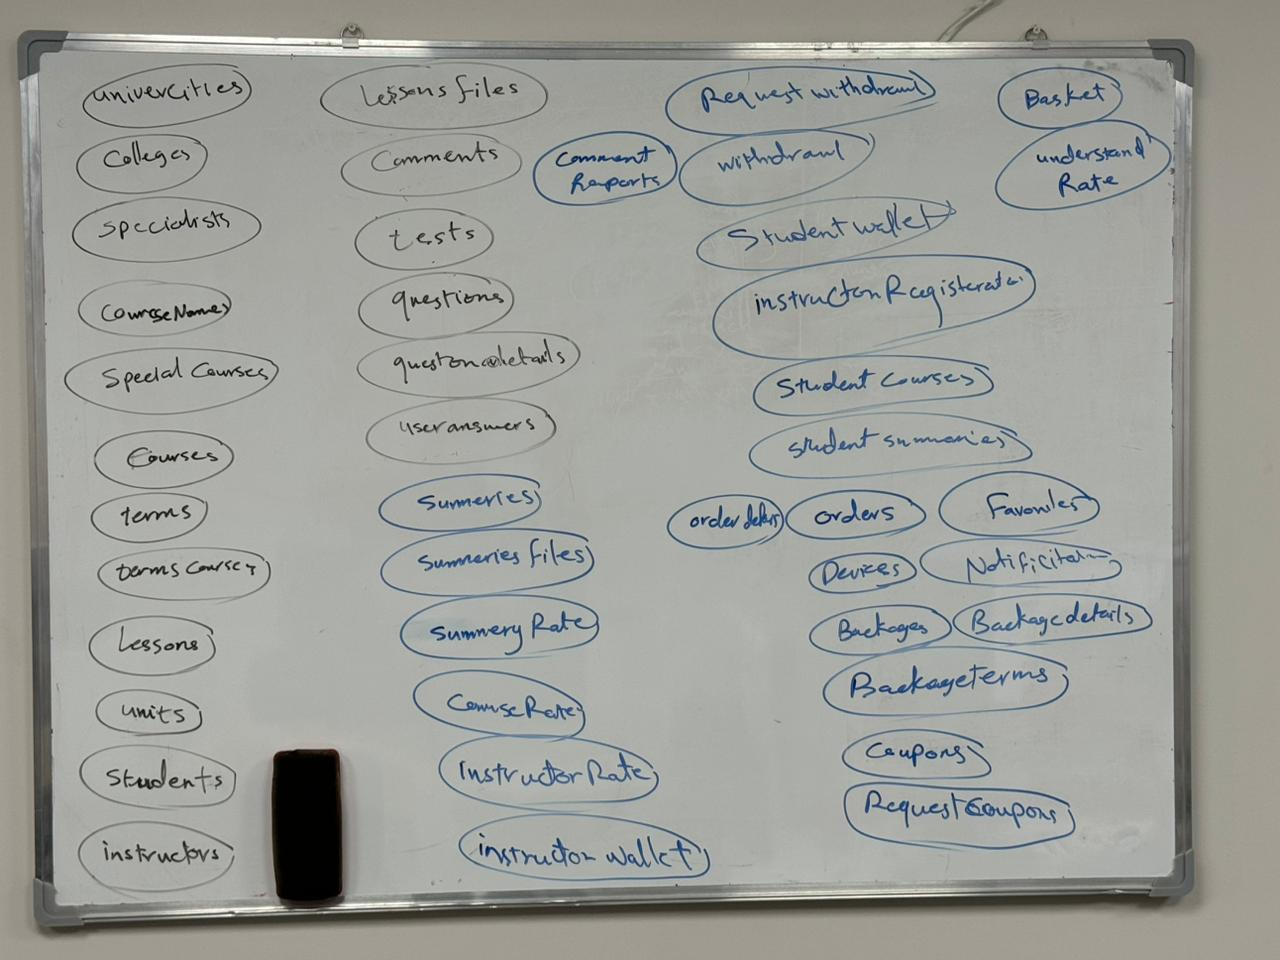 univercities
Colleges
specialists
CourseNames
Special Courses
Courses
terms
terms courses
Lessons
units
Students
instructors
Lessons files
Comments
tests
questions
useranswers
Summeries
Summeries files
Summery Rate
Course Rate
Instructor Rate
instructor wallet
Comment
Reports
Request withdrawl
withdrawl
Student wallet
Student Courses
student summeries
orders
Favorites
Devices
Backages
Backage details
Backage terms
Coupons
Request Coupons
Basket
understand
Rate